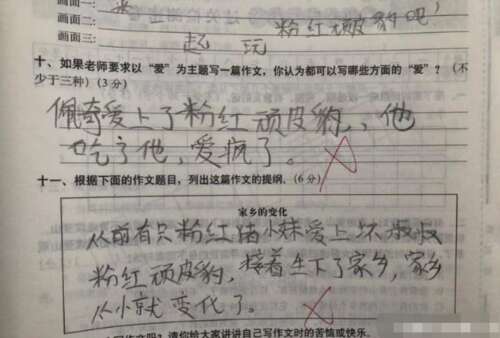 画面一:
画面二:
画面三: 起 玩 粉红顽皮豹吧)
十、如果老师要求以“爱”为主题写一篇作文,你认为都可以写哪些方面的“爱”?(不
少于三种)(3分)
佩奇爱上了粉红顽皮豹,他
吃了他,爱疯了。
十一、根据下面的作文题目,列出这篇作文的提纲。(6分)
家乡的变化
从前有只粉红猪小妹爱上坏叔叔
粉红顽皮豹,接着生下了家乡,家乡
从小就变化了。
写作文吗?请你给大家讲讲自己写作文时的苦恼或快乐。